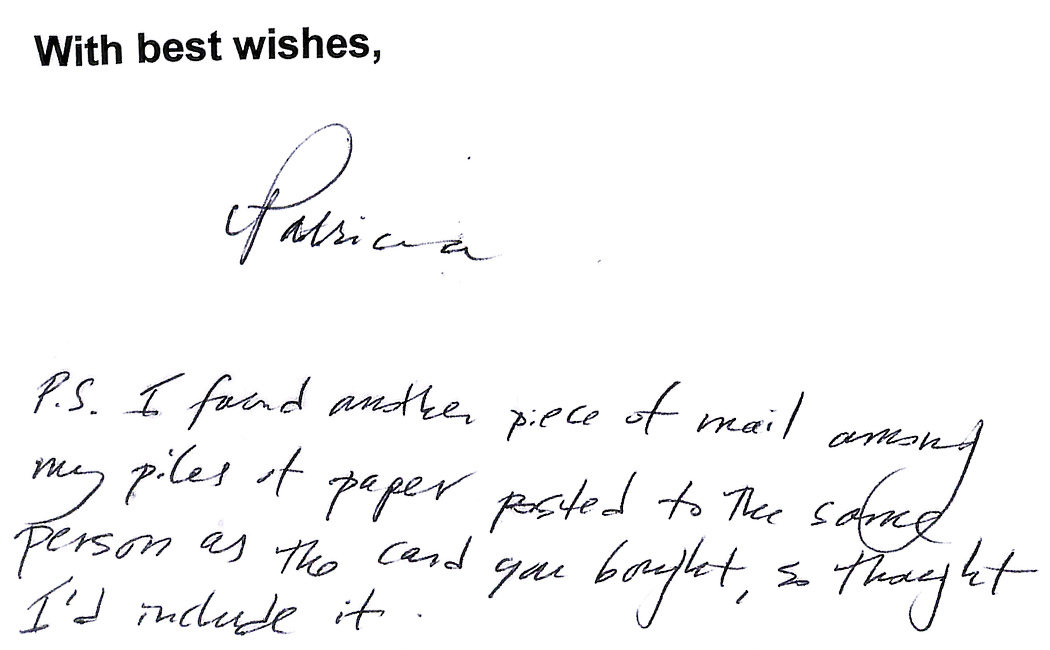 With best wishes,
Patricia
P.S. I found another piece of mail among
my piles of paper posted to the same
person as the card you bought, so thought
I'd include it.